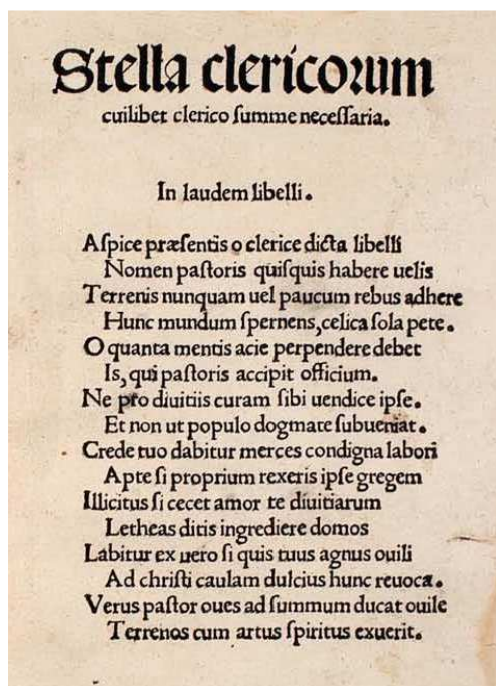 Stella clericorum
cuilibet clerico ſumme neceſſaria.
In laudem libelli.
Aſpice præſentis o clerice dicta libelli
Nomen paſtoris quiſquis habere uelis
Terrenis nunquam uel paucum rebus adhere
Hunc mundum ſpernens, celica ſola pete.
O quanta mentis acie perpendere debet
Is, qui paſtoris accipit officium.
Ne pro diuitiis curam ſibi uendice ipſe.
Et non ut populo dogmate ſubueniat.
Crede tuo dabitur merces condigna labori
Apte ſi proprium rexeris ipſe gregem
Illicitus ſi cecet amor te diuitiarum
Letheas ditis ingrediere domos
Labitur ex uero ſi quis tuus agnus ouili
Ad chriſti caulam dulcius hunc reuoca.
Verus paſtor oues ad ſummum ducat ouile
Terrenos cum artus ſpiritus exuerit.